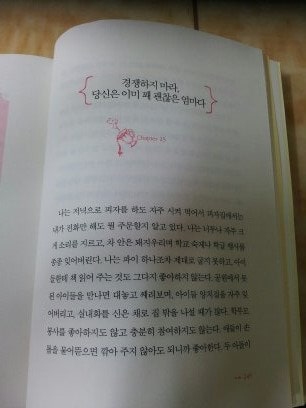 경쟁하지 마라,
당신은 이미 꽤 괜찮은 엄마다
Chapter 25
나는 저녁으로 피자를 하도 자주 시켜 먹어서 피자집에서는
내가 전화만 해도 뭘 주문할지 알고 있다. 나는 너무나 자주 크
게 소리를 지르고, 차 안은 돼지우리며 학교 숙제나 학급 행사를
종종 잊어버린다. 나는 파이 하나조차 제대로 굽지 못하고, 아이
들한테 책 읽어 주는 것도 그다지 좋아하지 않는다. 공원에서 못
된 아이들을 만나면 대놓고 째려보며, 아이들 양치질을 자주 잊
어버리고, 실내화를 신은 채로 집 밖을 나설 때가 많다. 학부모
봉사를 좋아하지도 않고 충분히 참여하지도 않는다. 애들이 손
톱을 물어뜯으면 깎아 주지 않아도 되니까 좋아한다. 두 아들이